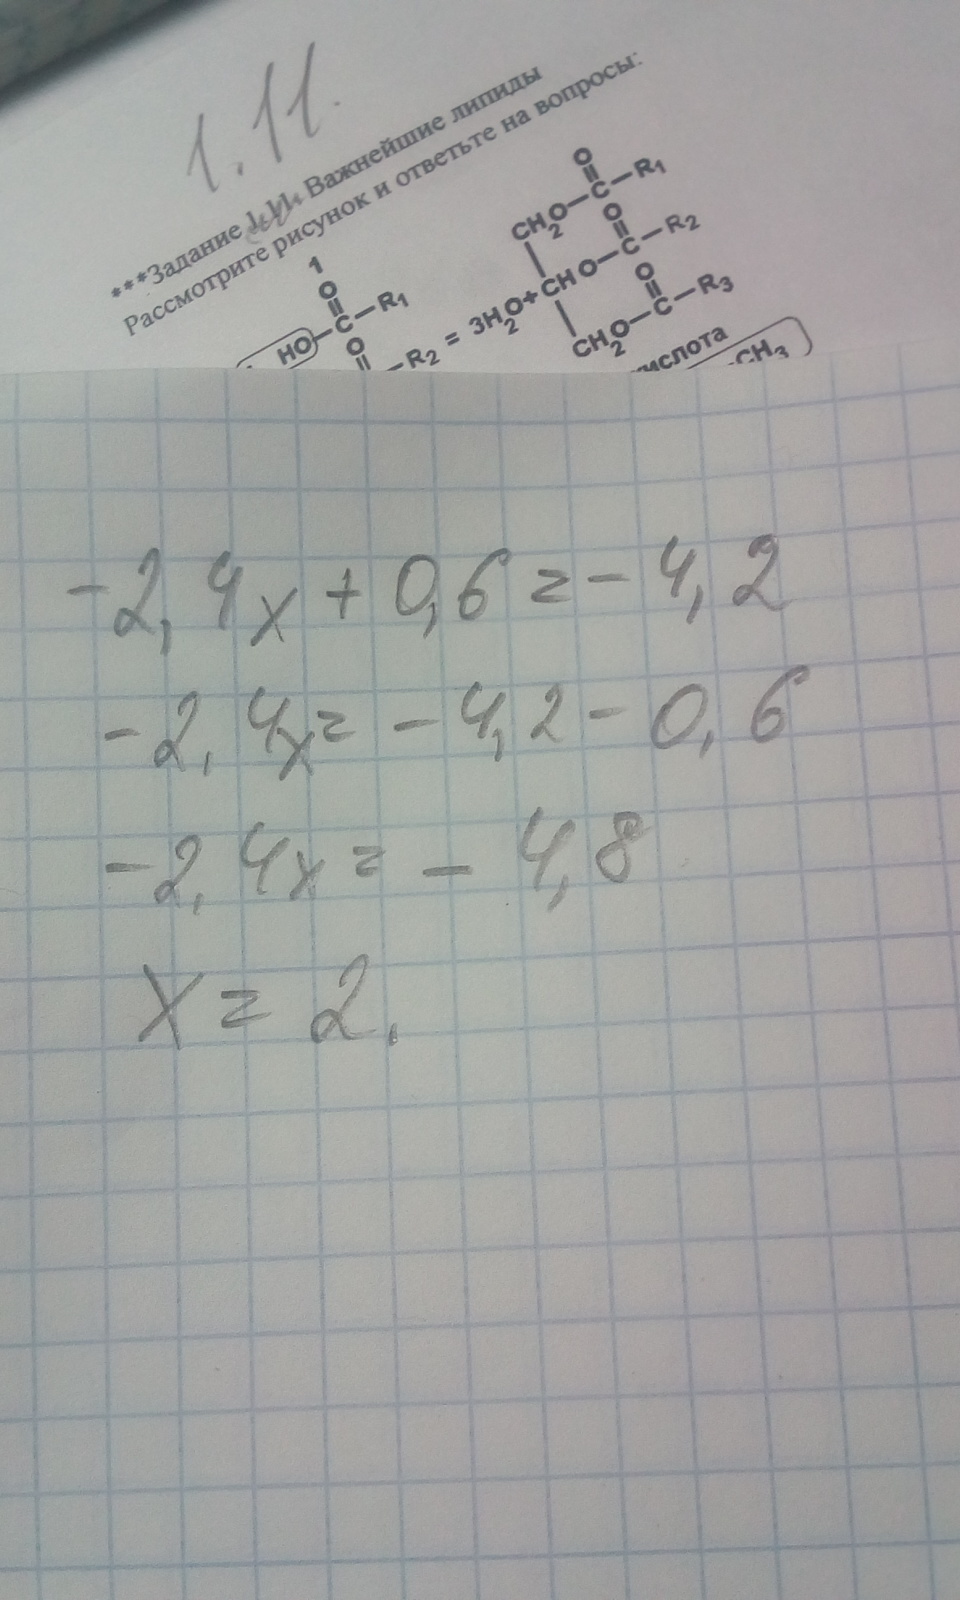 1.11.
***Задание 1.11. Важнейшие липиды
Рассмотрите рисунок и ответьте на вопросы:
1
O
HO-C-R1
O
-R2 = 3H2O+
O
CH2O-C-R1
O
CHO-C-R2
O
CH2O-C-R3
кислота
-CH3
-2,4x + 0,6 = - 4,2
-2,4x = - 4,2 - 0,6
-2,4x = - 4,8
x = 2.